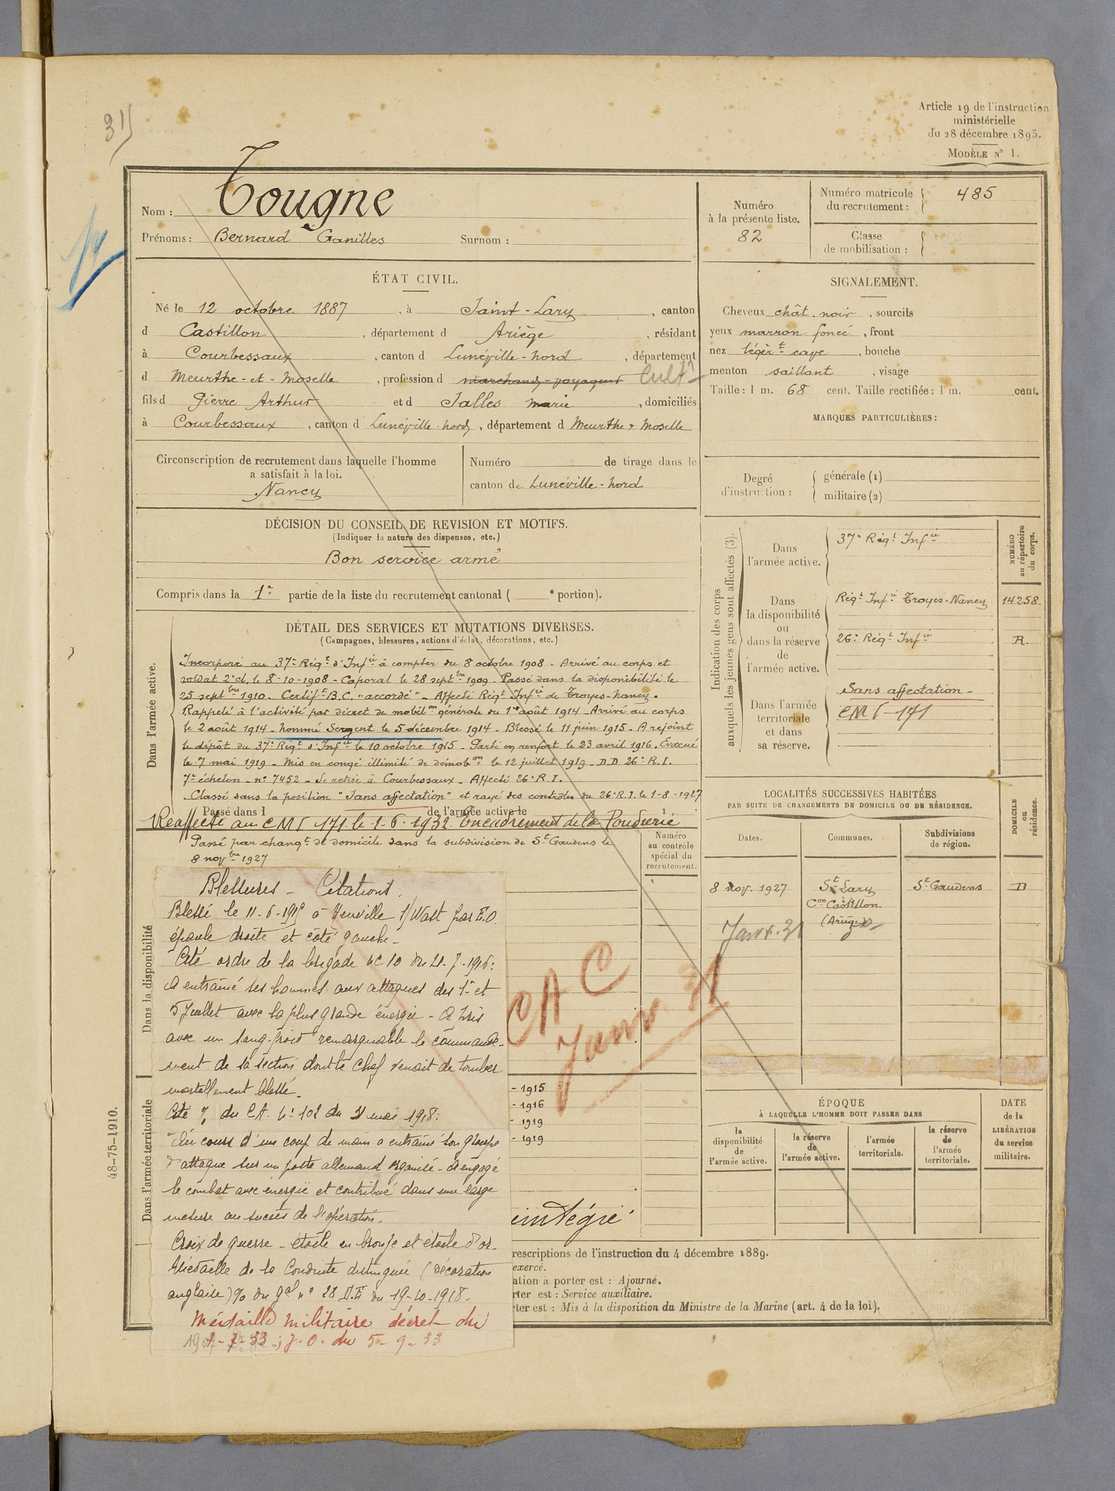 31)
Article 19 de l'instruction
ministérielle
du 28 décembre 1895.
MODÈLE N° 1.
Nom : Tougne
Prénoms : Bernard Ganilles Surnom :
Numéro
à la présente liste.
82
Numéro matricule
du recrutement : 485
Classe
de mobilisation :
ÉTAT CIVIL.
Né le 12 octobre 1887, à Saint-Lary, canton
d Castillon, département d Ariège, résidant
à Courbessaux, canton d Lunéville-nord, département
d Meurthe-et-Moselle, profession d marchand-voyageur Cult^r
fils d Pierre Arthur et d Salles Marie, domiciliés
à Courbessaux, canton d Lunéville-nord, département d Meurthe & Moselle
SIGNALEMENT.
Cheveux chât. noir, sourcils
yeux marron foncé, front
nez légèr^t cave, bouche
menton saillant, visage
Taille : 1 m. 68 cent. Taille rectifiée : 1 m. cent.
MARQUES PARTICULIÈRES :
Circonscription de recrutement dans laquelle l'homme
a satisfait à la loi.
Nancy
Numéro de tirage dans le
canton de Lunéville-nord
Degré
d'instruction :
générale (1)
militaire (2)
DÉCISION DU CONSEIL DE REVISION ET MOTIFS.
(Indiquer la nature des dispenses, etc.)
Bon service armé
Compris dans la 1re partie de la liste du recrutement cantonal ( e portion).
Indication des corps
auxquels les jeunes gens sont affectés (3).
NUMÉRO
au répertoire
du corps.
Dans
l'armée active.
37e Rég^t Inf^ie
Dans
la disponibilité
ou
dans la réserve
de
l'armée active.
Rég^t Inf^ie Troyes-Nancy 14258
26e Rég^t Inf^ie R.
Dans l'armée
territoriale
et dans
sa réserve.
Sans affectation -
CM I-171
DÉTAIL DES SERVICES ET MUTATIONS DIVERSES.
(Campagnes, blessures, actions d'éclat, décorations, etc.)
Dans l'armée active.
Incorporé au 37e Rég^t d'Inf^ie à compter du 8 octobre 1908 - Arrivé au corps et
soldat 2e cl. le 8-10-1908 - Caporal le 28 sept^bre 1909. Passé dans la disponibilité le
25 sept^bre 1910. Certif^t B.C. "accordé" - Affecté Rég^t Inf^ie de Troyes-Nancy.
Rappelé à l'activité par décret de mobil^on générale du 1er août 1914 - Arrivé au corps
le 2 août 1914 - Nommé Sergent le 5 décembre 1914 - Blessé le 11 juin 1915 - A rejoint
le dépôt du 37e Rég^t d'Inf^ie le 10 octobre 1915 - Parti en renfort le 23 avril 1916. Evacué
le 7 mai 1919 - Mis en congé illimité de démob^on le 12 juillet 1919 - D.D. 26e R.I.
7e échelon - n° 7452 - Se retire à Courbessaux - Affecté 26e R.I.
Classé dans la position "Sans affectation" et rayé des contrôles du 26e R.I. le 1-8-1927
Passé dans l de l'armée active le
Réaffecté au CM I 171 le 1-6-1932 Encadrement de la Poudrerie
Passé par chang^t de domicile dans la subdivision de S^t Gaudens le
8 nov^bre 1927
Numéro
au contrôle
spécial du
recrutement.
LOCALITÉS SUCCESSIVES HABITÉES
PAR SUITE DE CHANGEMENTS DE DOMICILE OU DE RÉSIDENCE.
Dates.
Communes.
Subdivisions
de région.
DOMICILE
ou
résidence.
8 nov. 1927 S^t Lary S^t Gaudens D
C^on Castillon
(Ariège)
Janv. 31
Dans la disponibilité
Blessures - Citations.
Blessé le 11-6-1915 à Neuville S/Wast par E.O
épaule droite et côté gauche -
Cité ordre de la brigade N° 10 du 21-7-1916 :
A entraîné ses hommes aux attaques des 1er et
5 Juillet avec la plus grande énergie - A pris
avec un sang-froid remarquable le commande-
ment de la section dont le chef venait de tomber
mortellement blessé -
Cité du C.A. N° 102 du 21 mai 1918 :
"Au cours d'un coup de main a entraîné son groupe
d'attaque sur un poste allemand organisé - a engagé
le combat avec énergie et contribué dans une large
mesure au succès de l'opération.
Croix de guerre - étoile en bronze et étoile d'or -
Médaille de la Conduite distinguée (décoration
anglaise) n° 28 du 19-10-1918 -
Médaille Militaire décret du
J.O. du 5-9-33
CAC
Janv. 31
- 1915
- 1916
- 1919
- 1919
Dans l'armée territoriale
ÉPOQUE
À LAQUELLE L'HOMME DOIT PASSER DANS
la
disponibilité
de
l'armée active.
la réserve
de
l'armée active.
l'armée
territoriale.
la réserve
de
l'armée
territoriale.
DATE
de la
LIBÉRATION
du service
militaire.
rescriptions de l'instruction du 4 décembre 1889.
exercé.
ation à porter est : Ajourné.
rter est : Service auxiliaire.
ter est : Mis à la disposition du Ministre de la Marine (art. 4 de la loi).
48-75-1910.